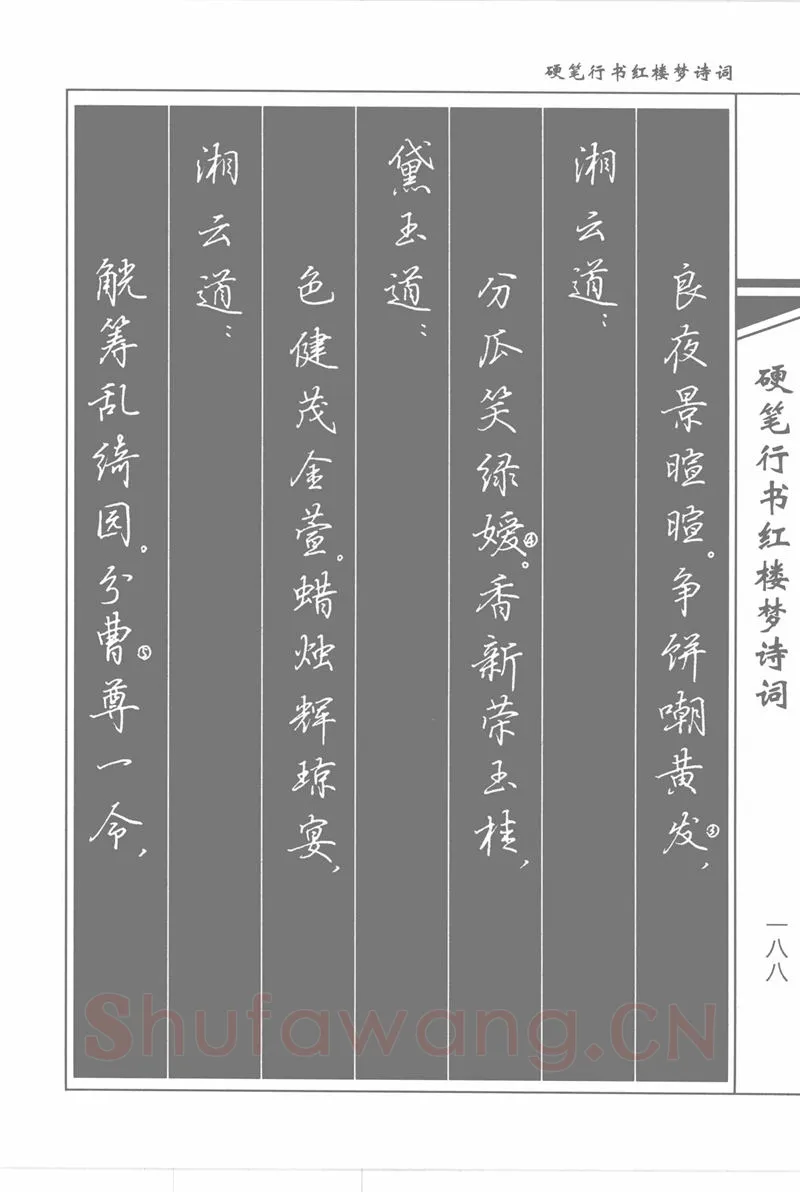 硬笔行书红楼梦诗词
良夜景暄暄。争饼嘲黄发③，
湘云道：
分瓜笑绿媛④。香新荣玉桂，
黛玉道：
色健茂金萱。蜡烛辉琼宴，
湘云道：
觥筹乱绮园。分曹⑤尊一令，
硬笔行书红楼梦诗词
一八八
Shufawang.CN